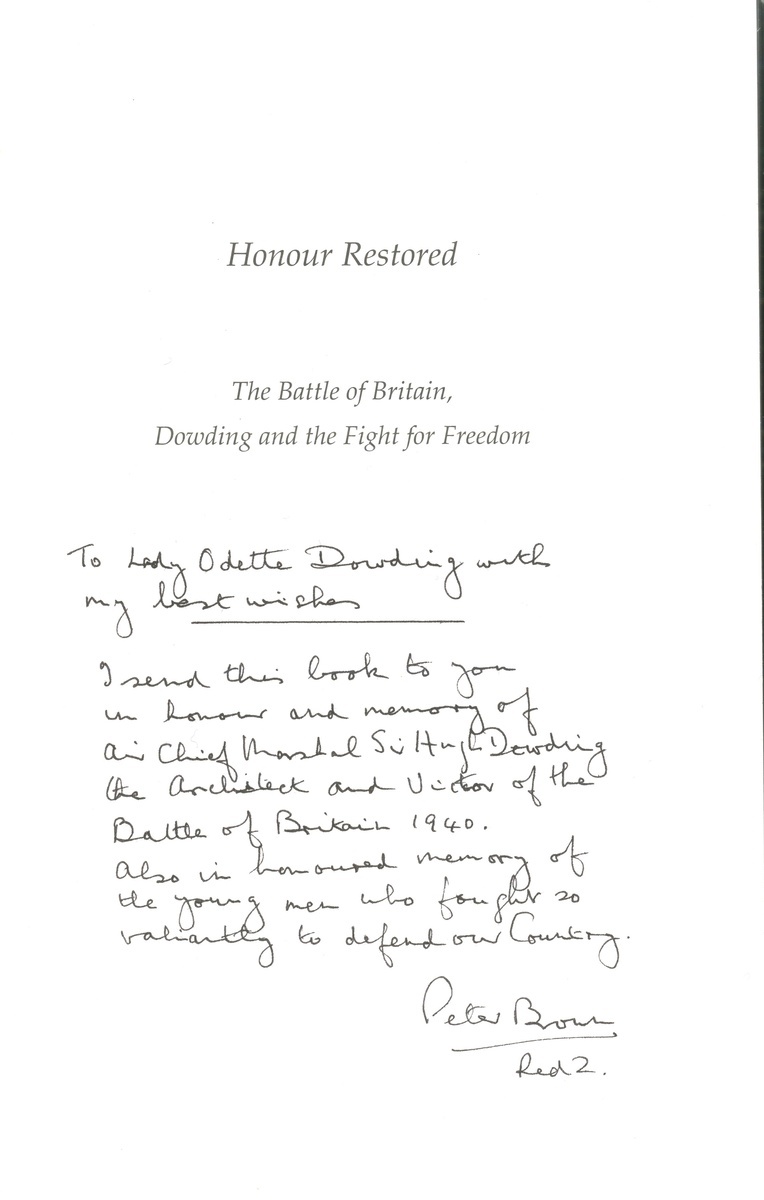 Honour Restored
The Battle of Britain,
Dowding and the Fight for Freedom
To Lady Odette Dowding with
my best wishes
I send this book to you
in honour and memory of
Air Chief Marshal Sir Hugh Dowding
the Architect and Victor of the
Battle of Britain 1940.
Also in honoured memory of
the young men who fought so
valiantly to defend our Country.
Peter Brown
Red 2.